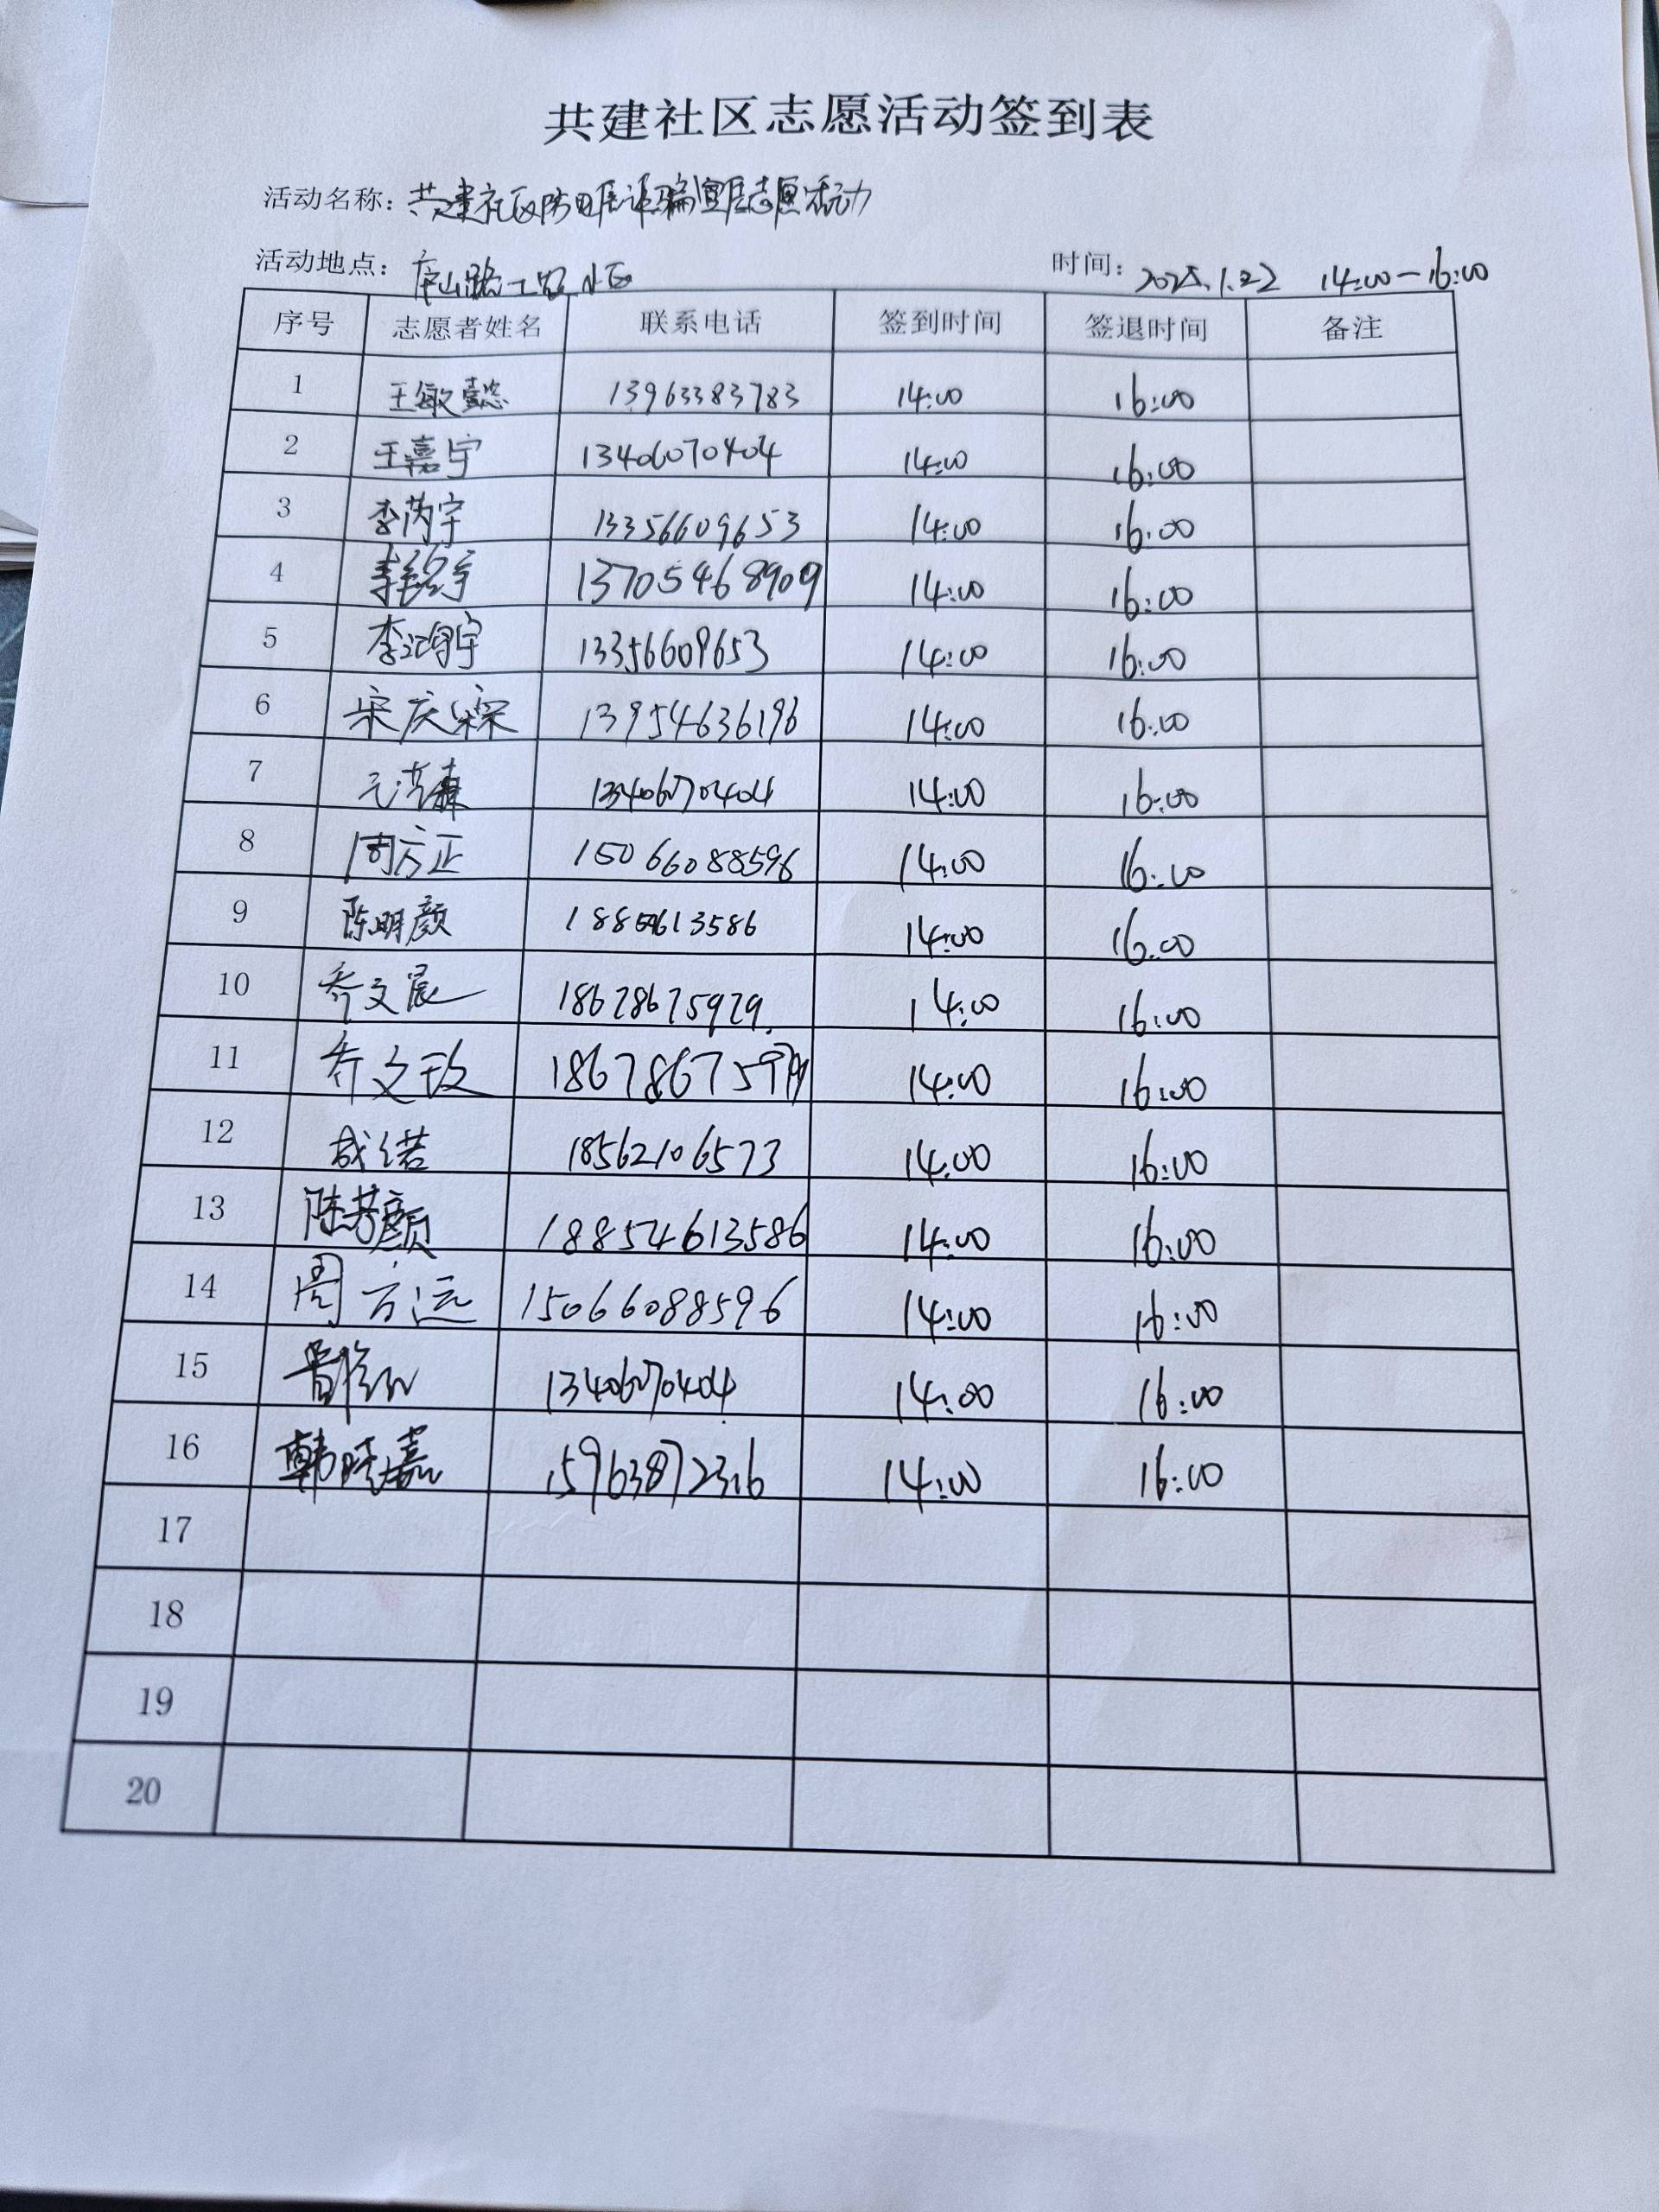 共建社区志愿活动签到表
活动名称：共建社区防电信诈骗宣传志愿活动
活动地点：庐山路 小区 时间：2025.1.22 14:00-16:00
序号 志愿者姓名 联系电话 签到时间 签退时间 备注
1 王敏懿 13963383783 14:00 16:00
2 王嘉宇 13406070404 14:00 16:00
3 李芮宇 13356609653 14:00 16:00
4 13705468909 14:00 16:00
5 李鸿宇 13356609653 14:00 16:00
6 宋庆琛 13954636196 14:00 16:00
7 13406070404 14:00 16:00
8 周方正 15066088596 14:00 16:00
9 陈明颜 14:00 16:00
10 乔文宸 18678675979 14:00 16:00
11 乔文玫 14:00 16:00
12 成诺 18562106573 14:00 16:00
13 陈芳颜 18854613586 14:00 16:00
14 周方远 15066088596 14:00 16:00
15 14:00 16:00
16 韩晓嘉 15963872316 14:00 16:00
17
18
19
20